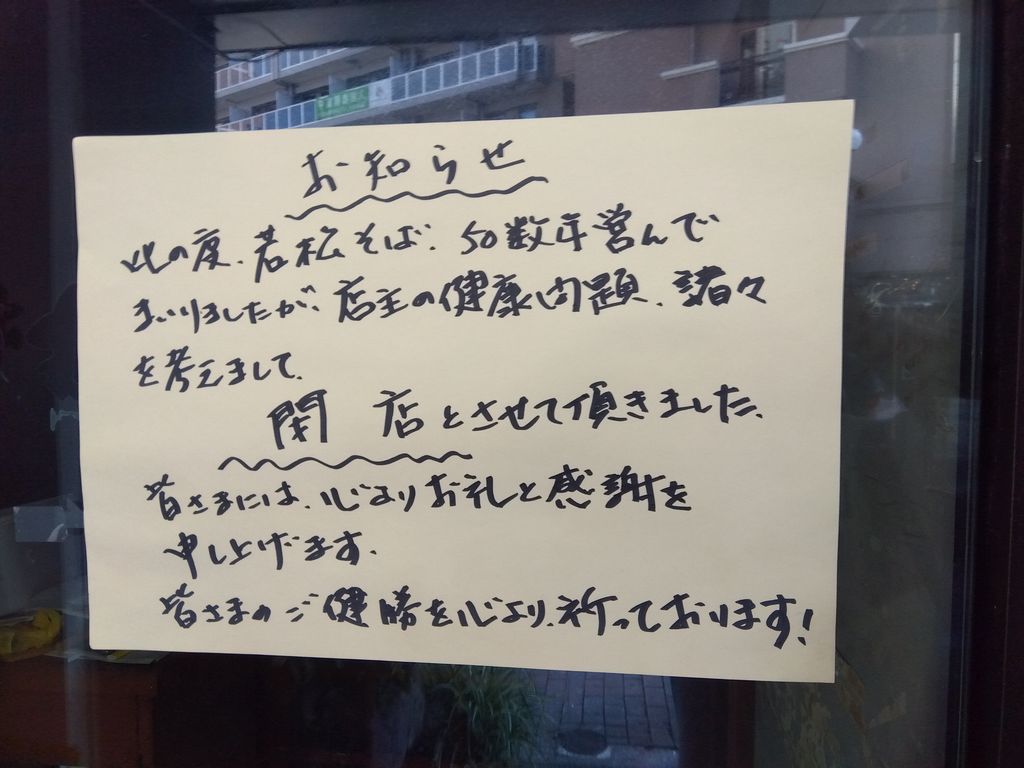 お知らせ
此の度、若松そば、50数年営んで
まいりましたが、店主の健康問題、諸々
を考えまして、
閉店とさせて頂きました、
皆さまには、心よりお礼と感謝を
申し上げます。
皆さまのご健勝を心より、祈っております!